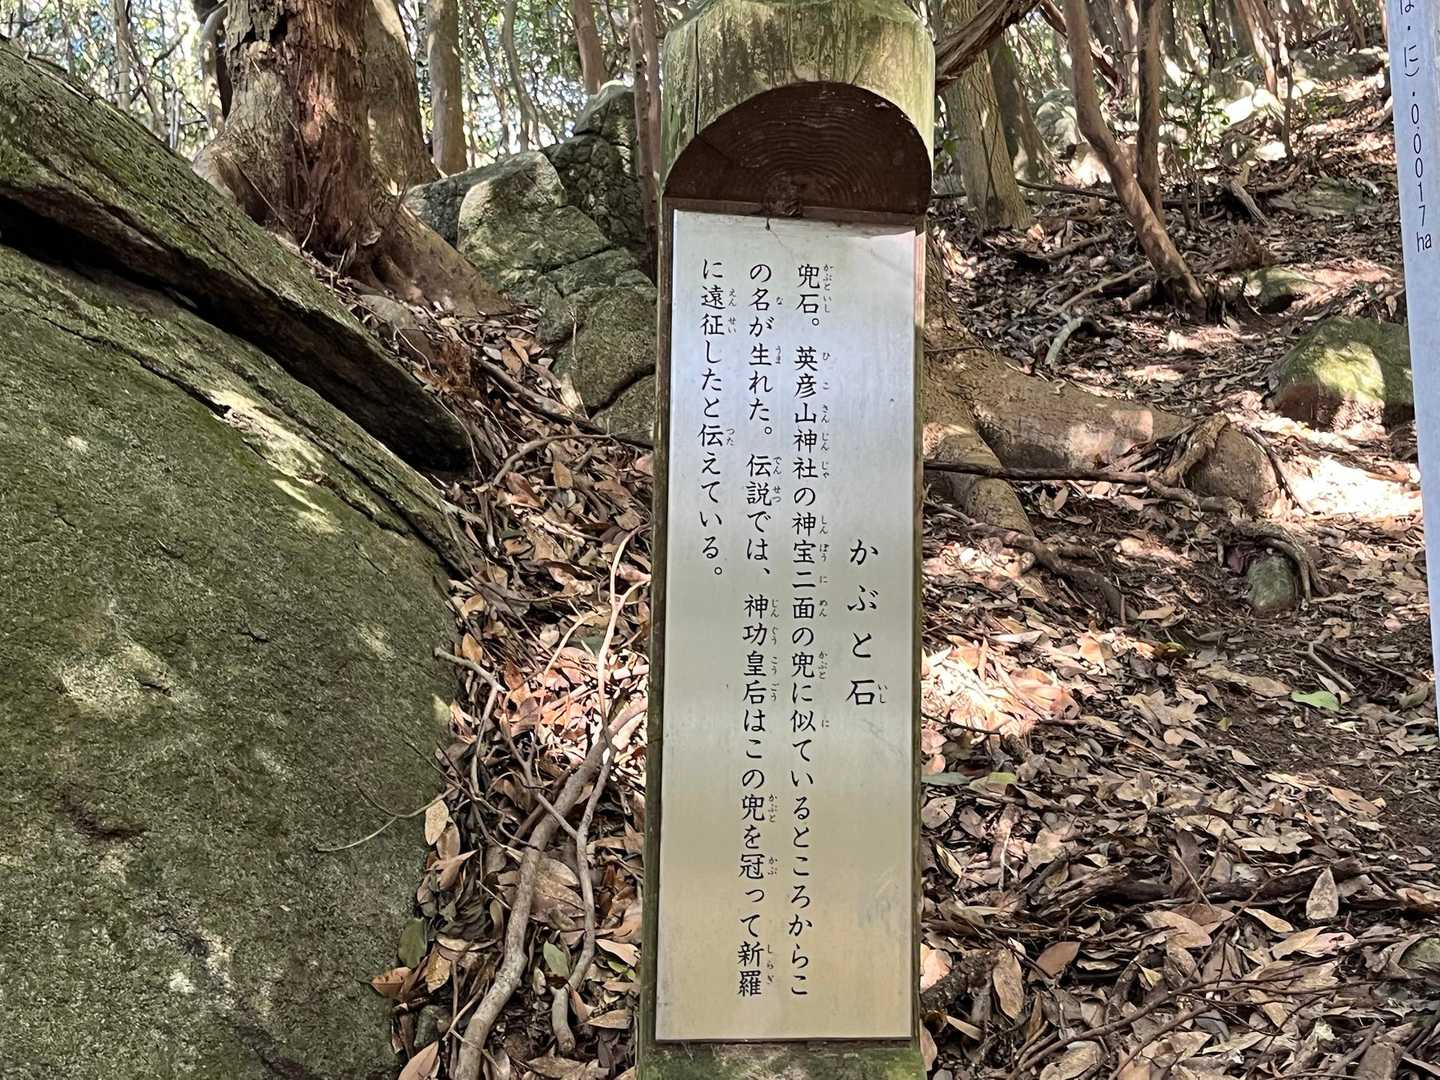 かぶと石
兜石。英彦山神社の神宝二面の兜に似ているところからこ
の名が生れた。伝説では、神功皇后はこの兜を冠って新羅
に遠征したと伝えている。
に).0.0017ha